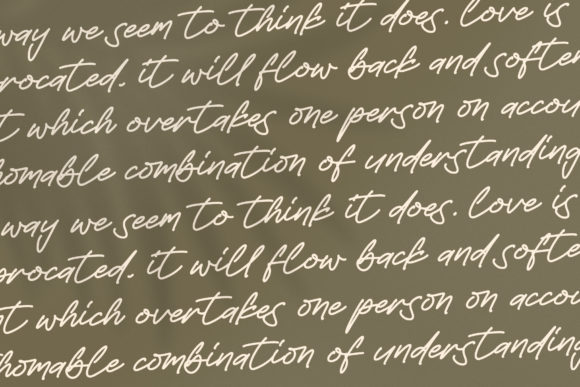 way we seem to think it does. love is
rocated. it will flow back and softe
t which overtakes one person on accou
homable combination of understanding
way we seem to think it does. love is
procated. it will flow back and softe
t which overtakes one person on accou
homable combination of understanding